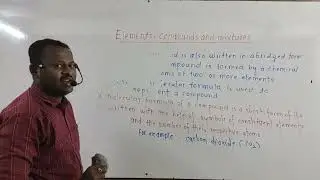 Elements, compounds and mixtures
d is also written in abridged form
mpound is formed by a chemical
oms of two or more elements
formula is used to
ent a compound
A molecular formula of a compound is a short form of the
written with the help of symbols of constituent elements
and the number of their respective atoms
For example carbon dioxide (CO2)